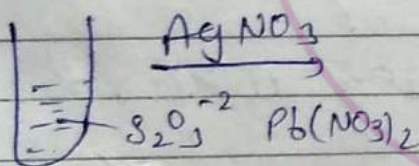 AgNO₃
S₂O₃⁻² Pb(NO₃)₂